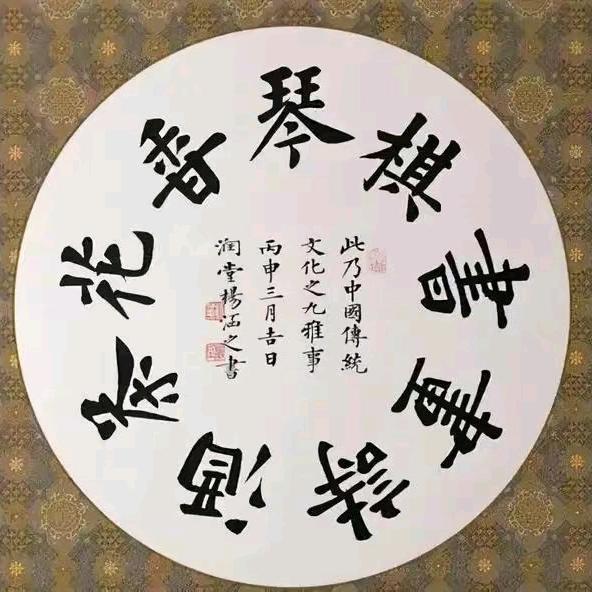 琴棋書畫詩酒茶花香
此乃中國傳統
文化之九雅事
丙申三月吉日
潤堂楊涵之書